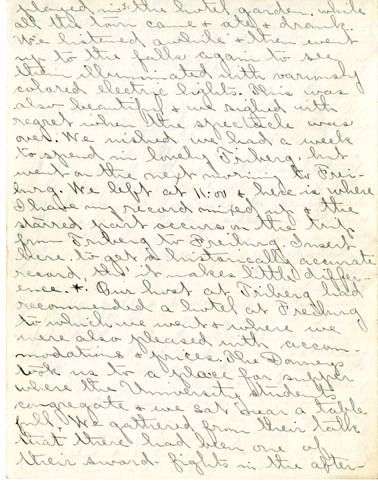 played in the hotel garden. while
all the town came & ate & drank.
We listened awhile & then went
up to the falls again to see
them illuminated with variously
colored electric lights. This was
also beautiful & we sighed with
regret when the spectacle was
over. We wished we had a week
to spend in lovely Triberg, but
went on the next morning to Frei-
burg. We left at 11:00 & here is where
I have my record mixed up & the
starred part occurs on the trip
from Triberg to Freiburg. Insert
here to get a historically accurate
record, tho' it makes little differ-
ence. * Our host at Triberg had
recommended a hotel at Freiburg
to which we went & where we
were also pleased with accom-
modations & prices. The
took us to a place for supper
where the University students
congregate & we sat near a table
full. We gathered from their talk
that there had been one of
their sword-fights in the after-